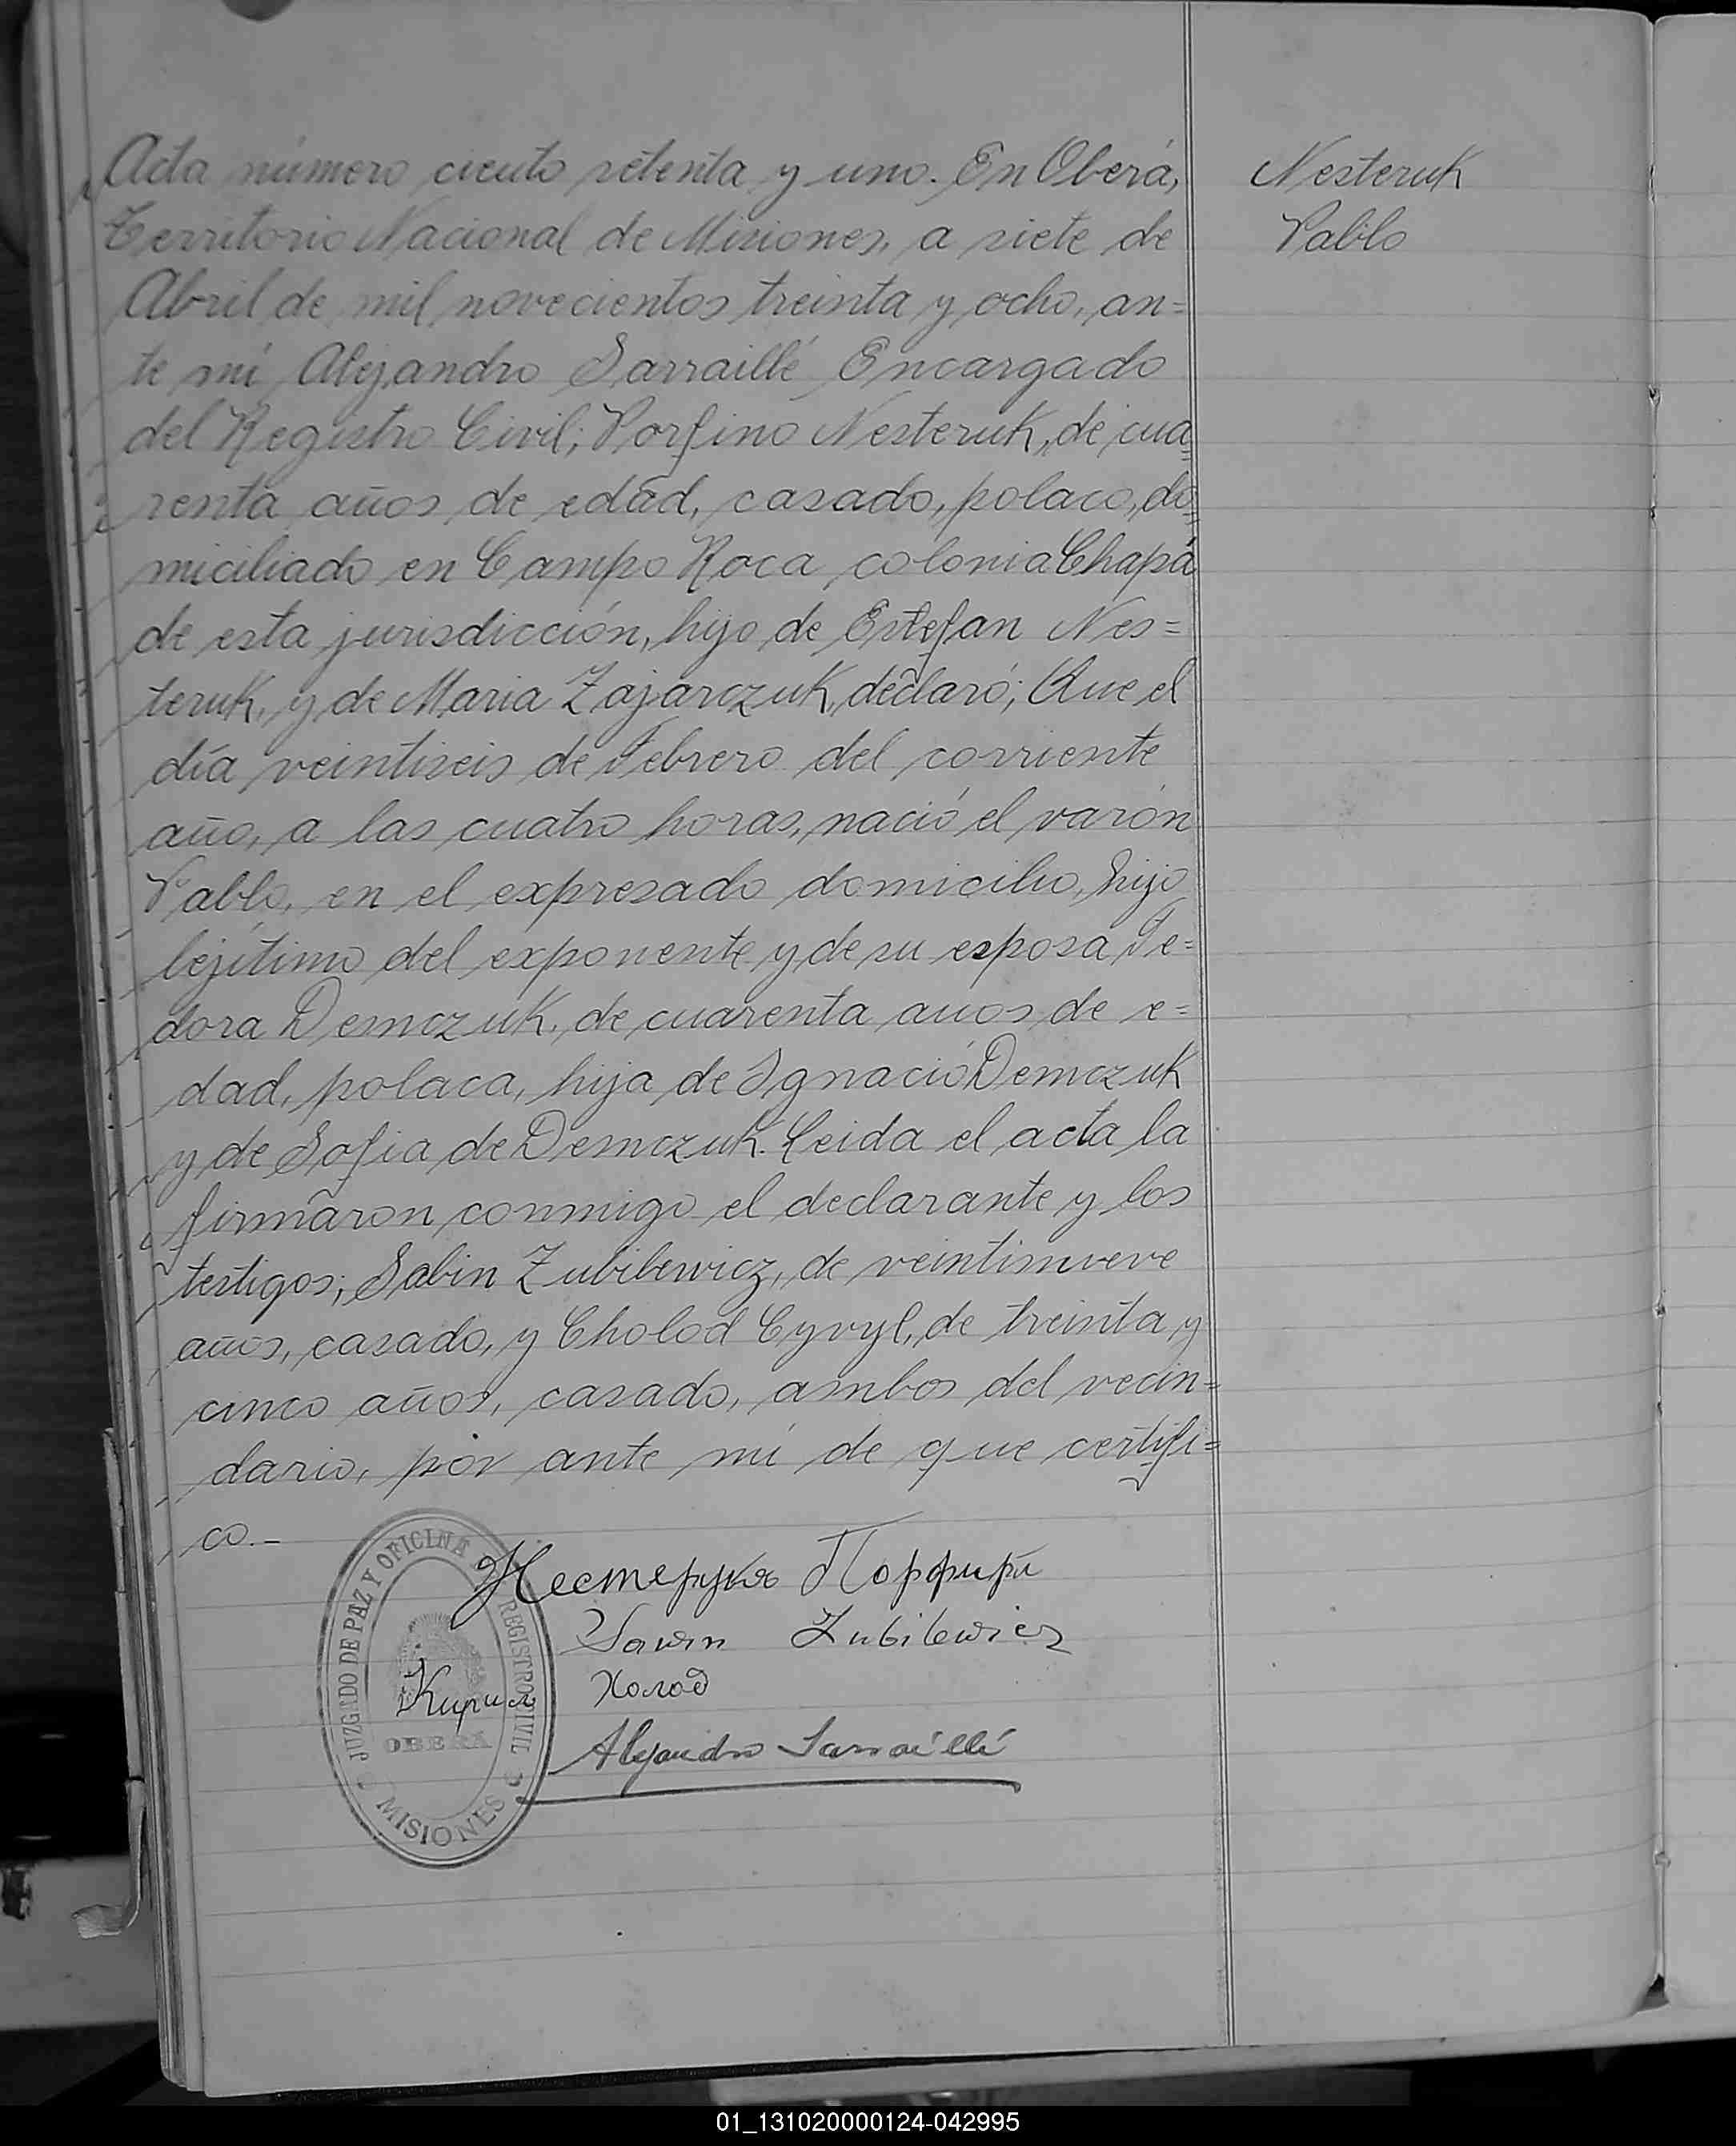 Acta número ciento setenta y uno. En Oberá,
Territorio Nacional de Misiones, a siete de
Abril de mil novecientos treinta y ocho, an=
te mi Alejandro Sarraillé Encargado
del Registro Civil; Porfino Nesteruk, de cua=
renta años de edad, casado, polaco, do=
miciliado en Campo Roca colonia Chapá
de esta jurisdicción, hijo de Estefan Nes=
teruk, y de Maria Zajarczuk, declaró; Que el
día veintiseis de Febrero del corriente
año, a las cuatro horas, nació el varón
Pablo, en el expresado domicilio, hijo
lejítimo del exponente y de su esposa Fe=
dora Demczuk, de cuarenta años de e=
dad, polaca, hija de Ignacio Demczuk
y de Sofia de Demczuk. Leida el acta la
firmaron conmigo el declarante y los
testigos; Sabin Zubilewicz, de veintinueve
años, casado, y Cholod Cyryl, de treinta y
cinco años, casado, ambos del vecin=
dario, por ante mi de que certifi=
co.-
Nesteruk
Pablo
Нестерукъ Порфири
Sawin Zubilewicz
Кирил Холод
Alejandro Sarraillé
JUZGADO DE PAZ Y OFICINA REGISTRO CIVIL
OBERA
MISIONES
01_131020000124-042995